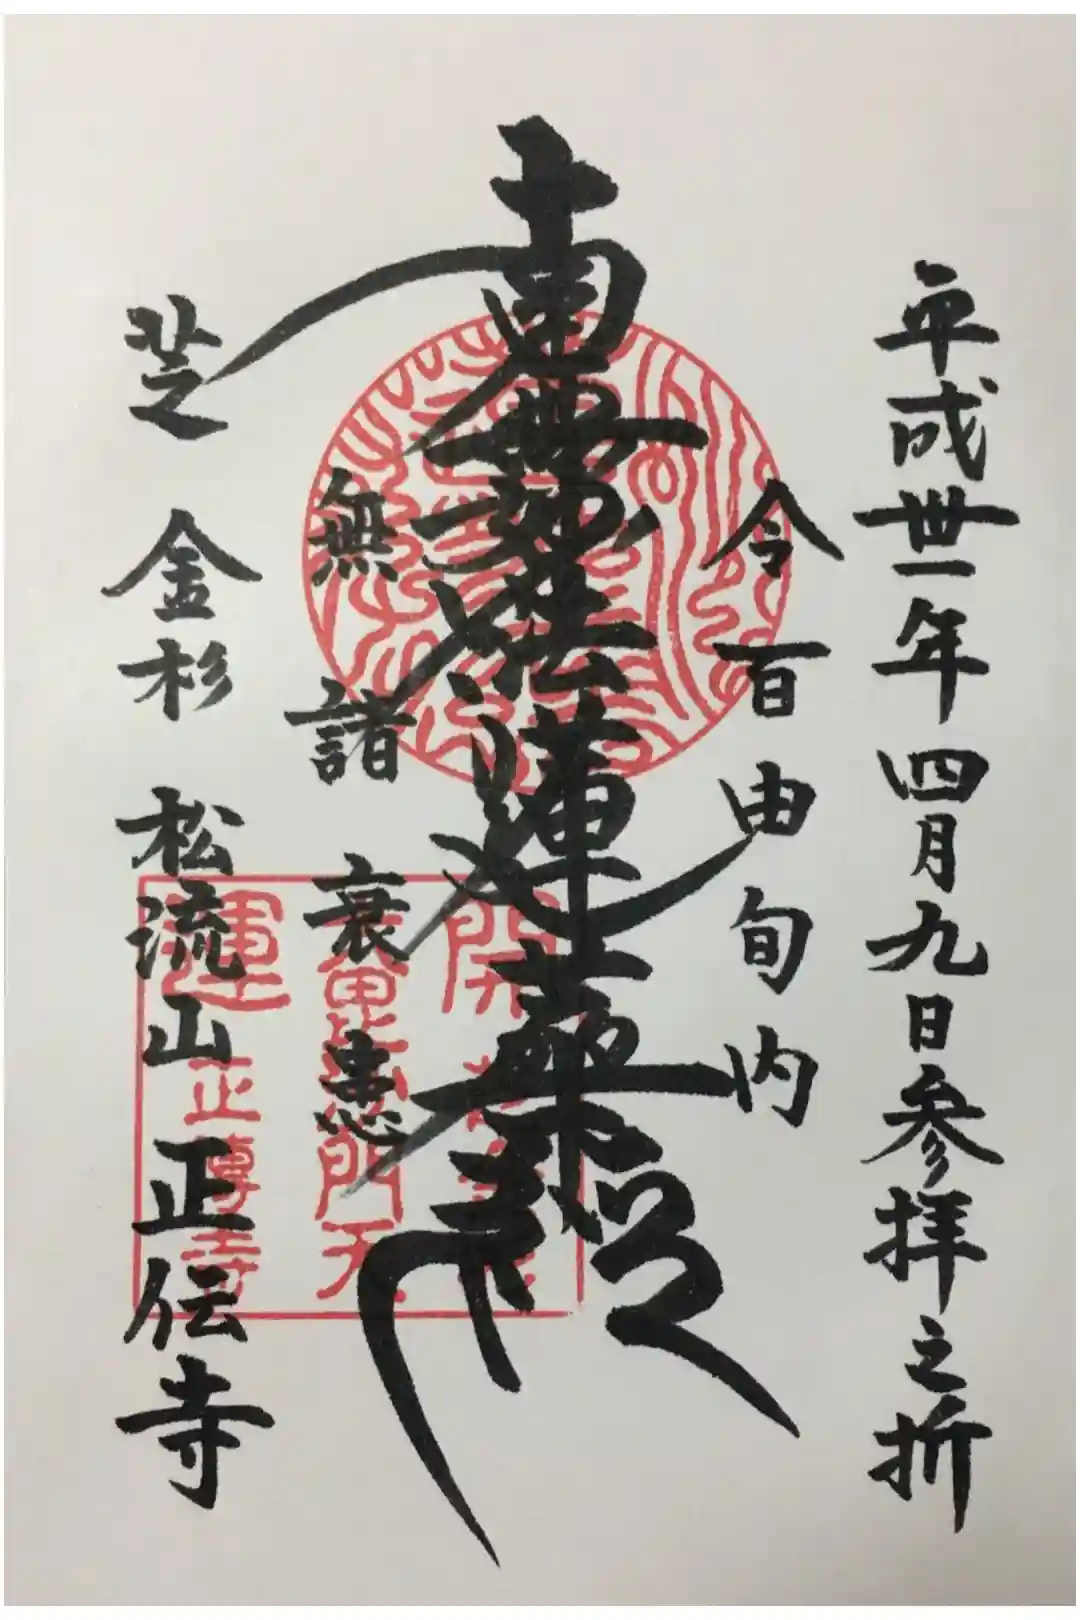 平成丗一年四月九日参拝之折
令百由旬内
南無妙法蓮華経
無諸衰患
芝金杉松流山正伝寺
開運
毘沙門天
正傳寺